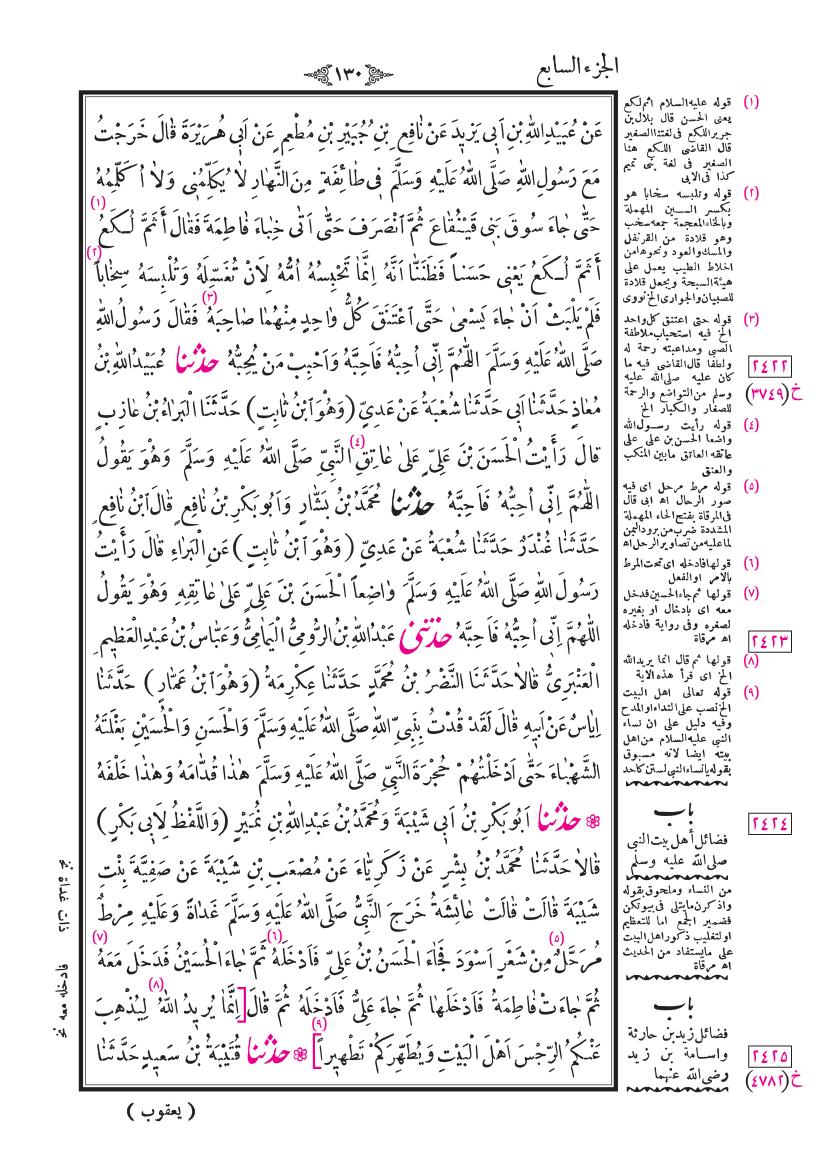 الجزء السابع
﴿١٣٠﴾
عَنْ عُبَيْدِاللّٰهِ بْنِ اَبِي يَزِيدَ عَنْ نَافِعِ بْنِ جُبَيْرِ بْنِ مُطْعِمٍ عَنْ اَبِي هُرَيْرَةَ قَالَ خَرَجْتُ
مَعَ رَسُولِ اللّٰهِ صَلَّى اللّٰهُ عَلَيْهِ وَسَلَّمَ فِي طَائِفَةٍ مِنَ النَّهَارِ لَا يُكَلِّمُنِي وَلَا اُكَلِّمُهُ
حَتّٰى جَاءَ سُوقَ بَنِي قَيْنُقَاعَ ثُمَّ انْصَرَفَ حَتّٰى اَتٰى خِبَاءَ فَاطِمَةَ فَقَالَ أَثَمَّ لُكَعُ (١)
أَثَمَّ لُكَعُ يَعْنِي حَسَناً فَظَنَنَّا اَنَّهُ اِنَّمَا تَحْبِسُهُ اُمُّهُ لِاَنْ تُغَسِّلَهُ وَتُلْبِسَهُ سِخَاباً (٢)
فَلَمْ يَلْبَثْ اَنْ جَاءَ يَسْعٰى حَتَّى اعْتَنَقَ كُلُّ وَاحِدٍ مِنْهُمَا صَاحِبَهُ (٣) فَقَالَ رَسُولُ اللّٰهِ
صَلَّى اللّٰهُ عَلَيْهِ وَسَلَّمَ اللّٰهُمَّ اِنِّي اُحِبُّهُ فَاَحِبَّهُ وَاَحْبِبْ مَنْ يُحِبُّهُ حدثنا عُبَيْدُاللّٰهِ بْنُ
مُعَاذٍ حَدَّثَنَا اَبِي حَدَّثَنَا شُعْبَةُ عَنْ عَدِيٍّ (وَهُوَ ابْنُ ثَابِتٍ) حَدَّثَنَا الْبَرَاءُ بْنُ عَازِبٍ
قَالَ رَأَيْتُ الْحَسَنَ بْنَ عَلِيٍّ عَلٰى عَاتِقِ (٤) النَّبِيِّ صَلَّى اللّٰهُ عَلَيْهِ وَسَلَّمَ وَهُوَ يَقُولُ
اللّٰهُمَّ اِنِّي اُحِبُّهُ فَاَحِبَّهُ حدثنا مُحَمَّدُ بْنُ بَشَّارٍ وَاَبُوبَكْرِ بْنُ نَافِعٍ قَالَ ابْنُ نَافِعٍ
حَدَّثَنَا غُنْدَرٌ حَدَّثَنَا شُعْبَةُ عَنْ عَدِيٍّ (وَهُوَ ابْنُ ثَابِتٍ) عَنِ الْبَرَاءِ قَالَ رَأَيْتُ
رَسُولَ اللّٰهِ صَلَّى اللّٰهُ عَلَيْهِ وَسَلَّمَ وَاضِعاً الْحَسَنَ بْنَ عَلِيٍّ عَلٰى عَاتِقِهِ وَهُوَ يَقُولُ
اللّٰهُمَّ اِنِّي اُحِبُّهُ فَاَحِبَّهُ حدثنى عَبْدُاللّٰهِ بْنُ الرُّومِيِّ الْيَمَامِيُّ وَعَبَّاسُ بْنُ عَبْدِالْعَظِيمِ
الْعَنْبَرِيُّ قَالَا حَدَّثَنَا النَّضْرُ بْنُ مُحَمَّدٍ حَدَّثَنَا عِكْرِمَةُ (وَهُوَ ابْنُ عَمَّارٍ) حَدَّثَنَا
اِيَاسٌ عَنْ اَبِيهِ قَالَ لَقَدْ قُدْتُ بِنَبِيِّ اللّٰهِ صَلَّى اللّٰهُ عَلَيْهِ وَسَلَّمَ وَالْحَسَنِ وَالْحُسَيْنِ بَغْلَتَهُ
الشَّهْبَاءَ حَتّٰى اَدْخَلْتُهُمْ حُجْرَةَ النَّبِيِّ صَلَّى اللّٰهُ عَلَيْهِ وَسَلَّمَ هٰذَا قُدَّامَهُ وَهٰذَا خَلْفَهُ
❁ حدثنا اَبُوبَكْرِ بْنُ اَبِي شَيْبَةَ وَمُحَمَّدُ بْنُ عَبْدِاللّٰهِ بْنِ نُمَيْرٍ (وَاللَّفْظُ لِاَبِي بَكْرٍ)
قَالَا حَدَّثَنَا مُحَمَّدُ بْنُ بِشْرٍ عَنْ زَكَرِيَّاءَ عَنْ مُصْعَبِ بْنِ شَيْبَةَ عَنْ صَفِيَّةَ بِنْتِ
شَيْبَةَ قَالَتْ قَالَتْ عَائِشَةُ خَرَجَ النَّبِيُّ صَلَّى اللّٰهُ عَلَيْهِ وَسَلَّمَ غَدَاةً وَعَلَيْهِ مِرْطٌ
مُرَحَّلٌ (٥) مِنْ شَعْرٍ اَسْوَدَ فَجَاءَ الْحَسَنُ بْنُ عَلِيٍّ فَاَدْخَلَهُ (٦) ثُمَّ جَاءَ الْحُسَيْنُ فَدَخَلَ مَعَهُ (٧)
ثُمَّ جَاءَتْ فَاطِمَةُ فَاَدْخَلَهَا ثُمَّ جَاءَ عَلِيٌّ فَاَدْخَلَهُ ثُمَّ قَالَ [اِنَّمَا يُرِيدُ اللّٰهُ (٨) لِيُذْهِبَ
عَنْكُمُ الرِّجْسَ اَهْلَ الْبَيْتِ (٩) وَيُطَهِّرَكُمْ تَطْهِيراً] ❁ حدثنا قُتَيْبَةُ بْنُ سَعِيدٍ حَدَّثَنَا
( يعقوب )
(١) قوله عليه السلام اثم لكع
يعنى الحسن قال بلال بن
جرير اللكع فى لغتنا الصغير
قال القاضى اللكع هنا
الصغير فى لغة بنى تميم
كذا فى الابى
(٢) قوله وتلبسه سخابا هو
بكسر السين المهملة
وبالخاء المعجمة جمعه سخب
وهو قلادة من القرنفل
والمسك والعود ونحوها من
اخلاط الطيب يعمل على
هيئة السبحة ويجعل قلادة
للصبيان والجوارى الخ نووى
(٣) قوله حتى اعتنق كل واحد
الخ فيه استحباب ملاطفة
الصبى ومداعبته رحمة له
ولطفا قال القاضى فيه ما
كان عليه صلى الله عليه
وسلم من التواضع والرحمة
للصغار والكبار الخ
(٤) قوله رأيت رسول الله
واضعا الحسن بن على على
عاتقه العاتق مابين المنكب
والعنق
(٥) قوله مرط مرحل اى فيه
صور الرحال اه ابى قال
فى المرقاة بفتح الحاء المهملة
المشددة ضرب من برود اليمن
لما عليه من تصاوير الرحل اه
(٦) قولها فادخله اى تحت المرط
بالامر او الفعل
(٧) قولها ثم جاء الحسين فدخل
معه اى بادخال او بغيره
لصغره وفى رواية فادخله
اه مرقاة
(٨) قولها ثم قال انما يريد الله
الخ اى قرأ هذه الاية
(٩) قوله تعالى اهل البيت
الخ نصب على النداء او المدح
وفيه دليل على ان نساء
النبى عليه السلام من اهل
بيته ايضا لانه مسبوق
بقوله يانساء النبى لستن كاحد
باب
فضائل أهل بيت النبى
صلى الله عليه وسلم
من النساء وملحوق بقوله
واذكرن مايتلى فى بيوتكن
فضمير الجمع اما للتعظيم
او لتغليب ذكور اهل البيت
على مايستفاد من الحديث
اه مرقاة
باب
فضائل زيد بن حارثة
واسامة بن زيد
رضى الله عنهما
٢٤٢٢
خ (٣٧٤٩)
٢٤٢٣
٢٤٢٤
٢٤٢٥
خ (٤٧٨٢)
ذات غداة نخ
فادخله معه نخ